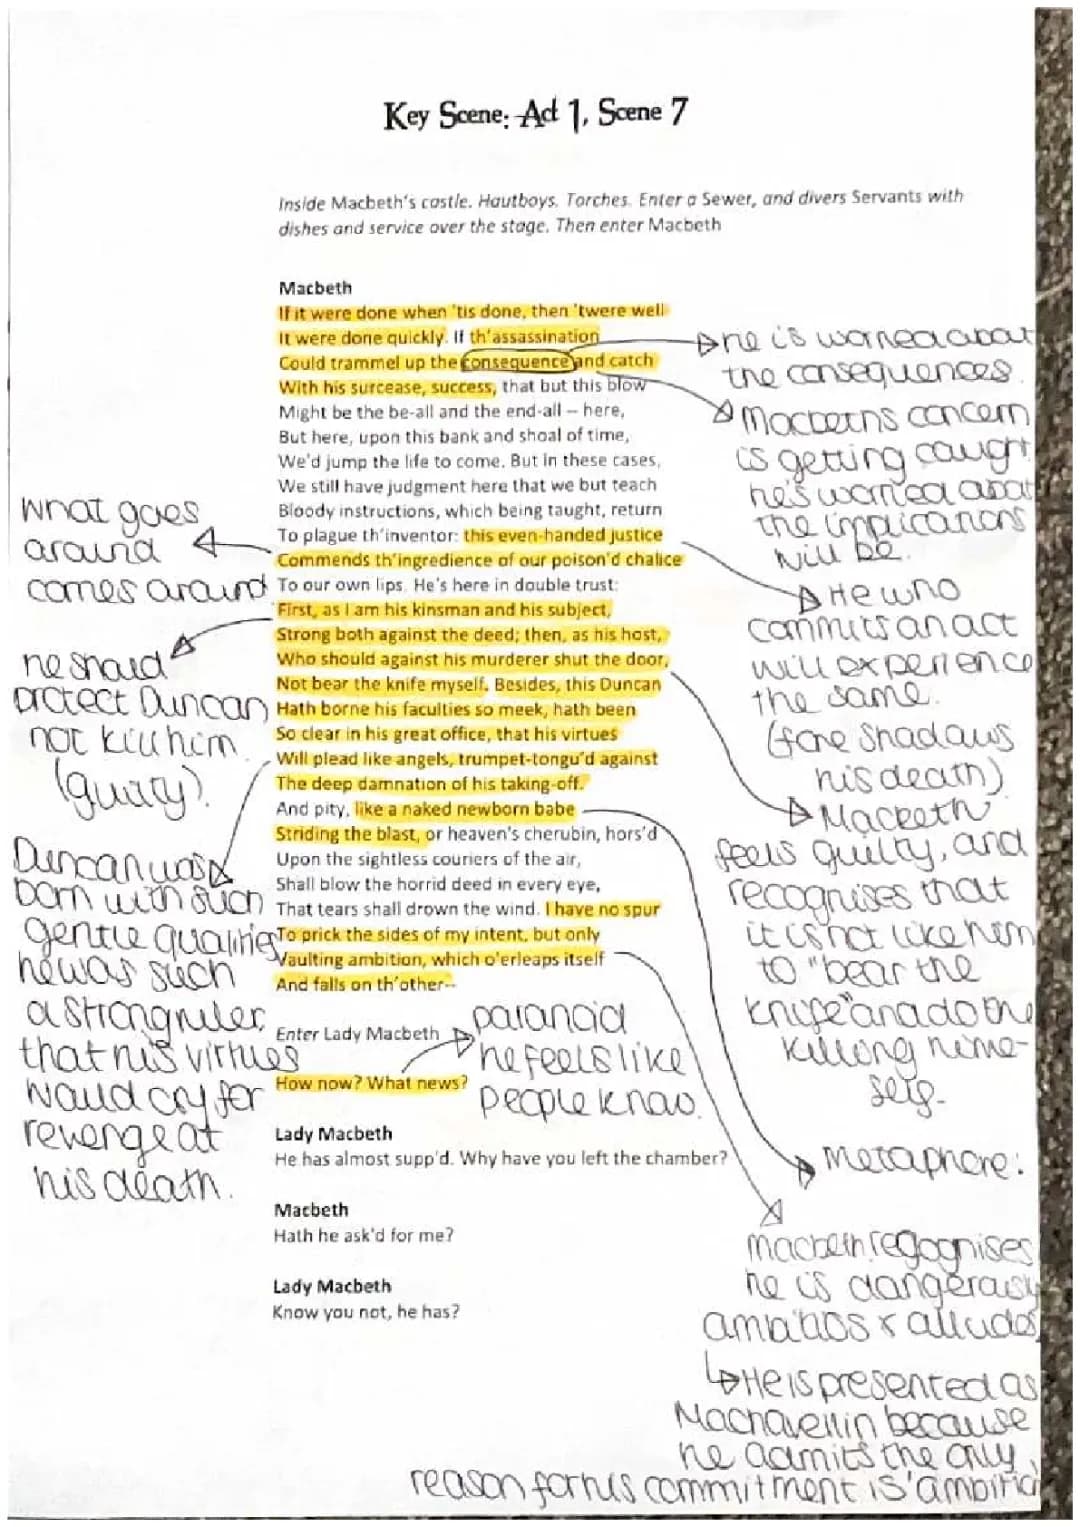 Key Scene: Act 1, Scene 7
Inside Macbeth's castle. Hautboys. Torches. Enter a Sewer, and divers Servants with
dishes and service over the stage. Then enter Macbeth
Macbeth
If it were done when 'tis done, then 'twere well
It were done quickly. If th'assassination
Could trammel up the consequence and catch
With his surcease, success, that but this blow
Might be the be-all and the end-all – here,
But here, upon this bank and shoal of time,
We'd jump the life to come. But in these cases,
We still have judgment here that we but teach
Bloody instructions, which being taught, return
To plague th'inventor: this even-handed justice
Commends th'ingredience of our poison'd chalice
To our own lips. He's here in double trust:
First, as I am his kinsman and his subject,
Strong both against the deed; then, as his host,
Who should against his murderer shut the door,
Not bear the knife myself. Besides, this Duncan
Hath borne his faculties so meek, hath been
So clear in his great office, that his virtues
Will plead like angels, trumpet-tongu'd against
The deep damnation of his taking-off.
And pity, like a naked newborn babe
Striding the blast, or heaven's cherubin, hors'd
Upon the sightless couriers of the air,
Shall blow the horrid deed in every eye,
That tears shall drown the wind. I have no spur
To prick the sides of my intent, but only
Vaulting ambition, which o'erleaps itself
And falls on th'other--
Enter Lady Macbeth
How now? What news?
Lady Macbeth
He has almost supp'd. Why have you left the chamber?
Macbeth
Hath he ask'd for me?
Lady Macbeth
Know you not, he has?
what goes
around
comes around
he should
protect Duncan
not kill him
(guilty).
Duncan was
born with such
gentle qualities
he was such
a strong ruler
that his virtues
would cry for
revenge at
his death.
paranoid
he feels like
people know.
he is worried about
the consequences.
Macbeths concern
is getting caught
he's worried about
the implications
will be.
He who
commits an act
will experience
the same.
(foreshadows
his death)
Macbeth
feels guilty, and
recognises that
it is not like him
to "bear the
knife" and do the
killing himse-
self.
metaphore:
macbeth regognises
he is dangerously
ambitios & alludes
He is presented as
Machavellin because
he admits the only
reason for his commitment is 'ambition